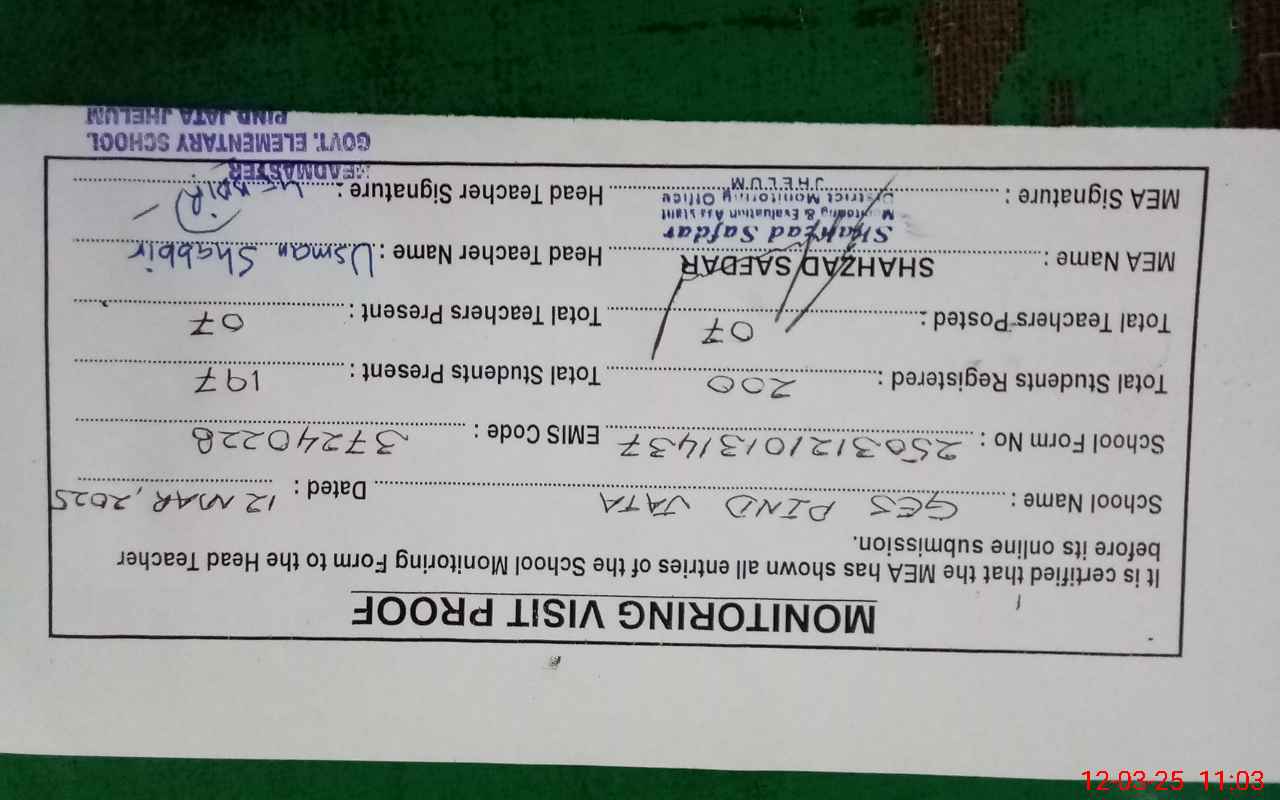 MONITORING VISIT PROOF
It is certified that the MEA has shown all entries of the School Monitoring Form to the Head Teacher
before its online submission.
School Name : GES PIND JATA Dated : 12 MAR, 2025
School Form No : 25031210131437 EMIS Code : 37240228
Total Students Registered : 200 Total Students Present : 197
Total Teachers Posted : 07 Total Teachers Present : 07
MEA Name : SHAHZAD SAFDAR Head Teacher Name : Usman Shabbir
Shahzad Safdar
Monitoring & Evaluation Assistant
District Monitoring Office
JHELUM
MEA Signature : Head Teacher Signature :
HEADMASTER
GOVT. ELEMENTARY SCHOOL
PIND JATA JHELUM
12-03-25 11:03